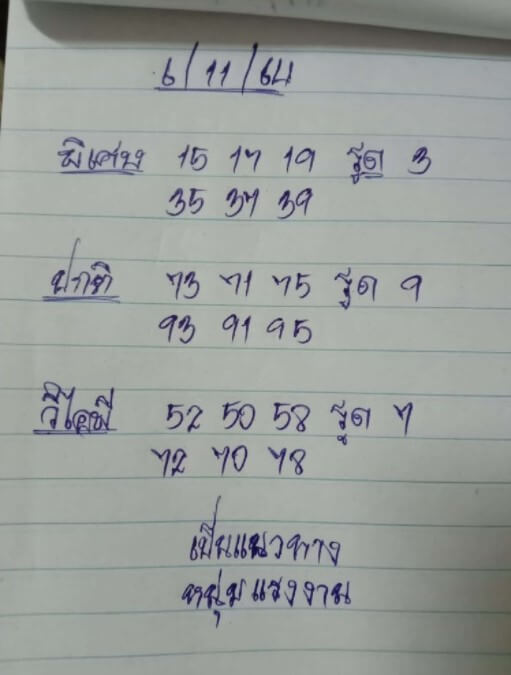 6/11/64
พิเศษ 15 17 19 รูด 3
35 37 39
ปกติ 73 71 75 รูด 9
93 91 95
วีไอพี 52 50 58 รูด 7
72 70 78
เป็นแนวทาง
หนุ่มแรงงาน